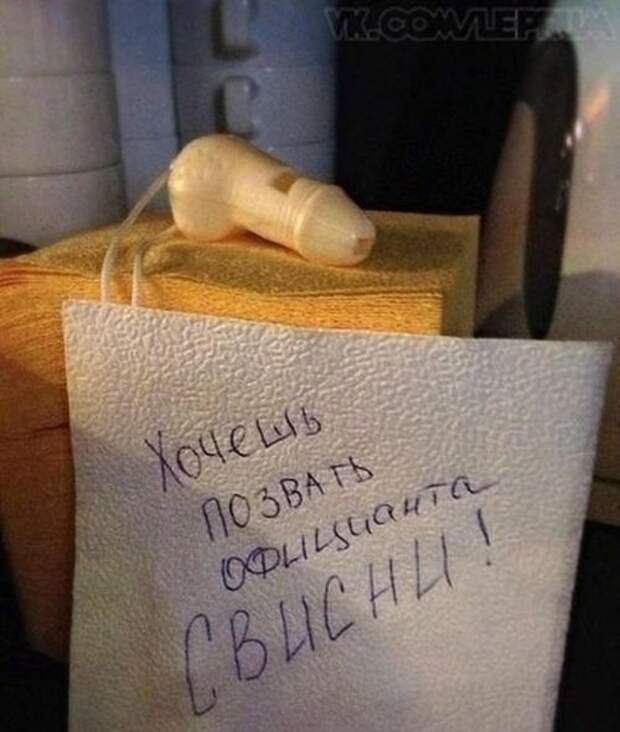 VK.COM/LEPRUM
Хочешь
позвать
официанта
СВИСНИ!